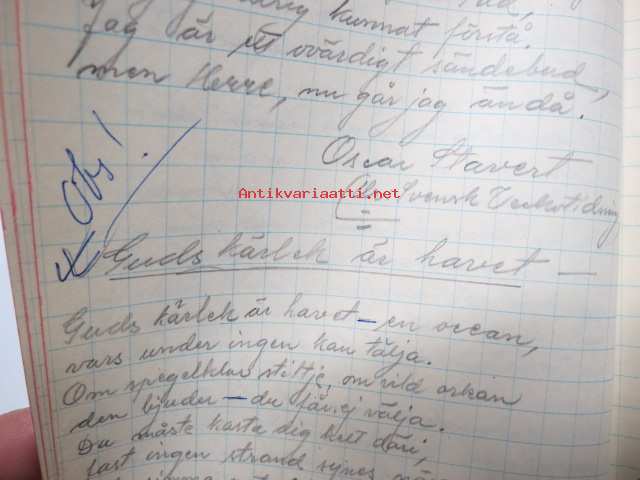 kunnat förstå.
Jag är ett ovärdigt sändebud,
men Herre, nu går jag ändå.
Oscar Stavert
Svensk Veckotidning
Obs!
Guds kärlek är havet —
Guds kärlek är havet – en ocean,
vars under ingen kan tälja.
Om spegelklar stiltje, om vild orkan
den bjuder – du får ej välja.
Du måste kasta dig helt däri,
fast ingen strand synes
Antikvariaatti.net